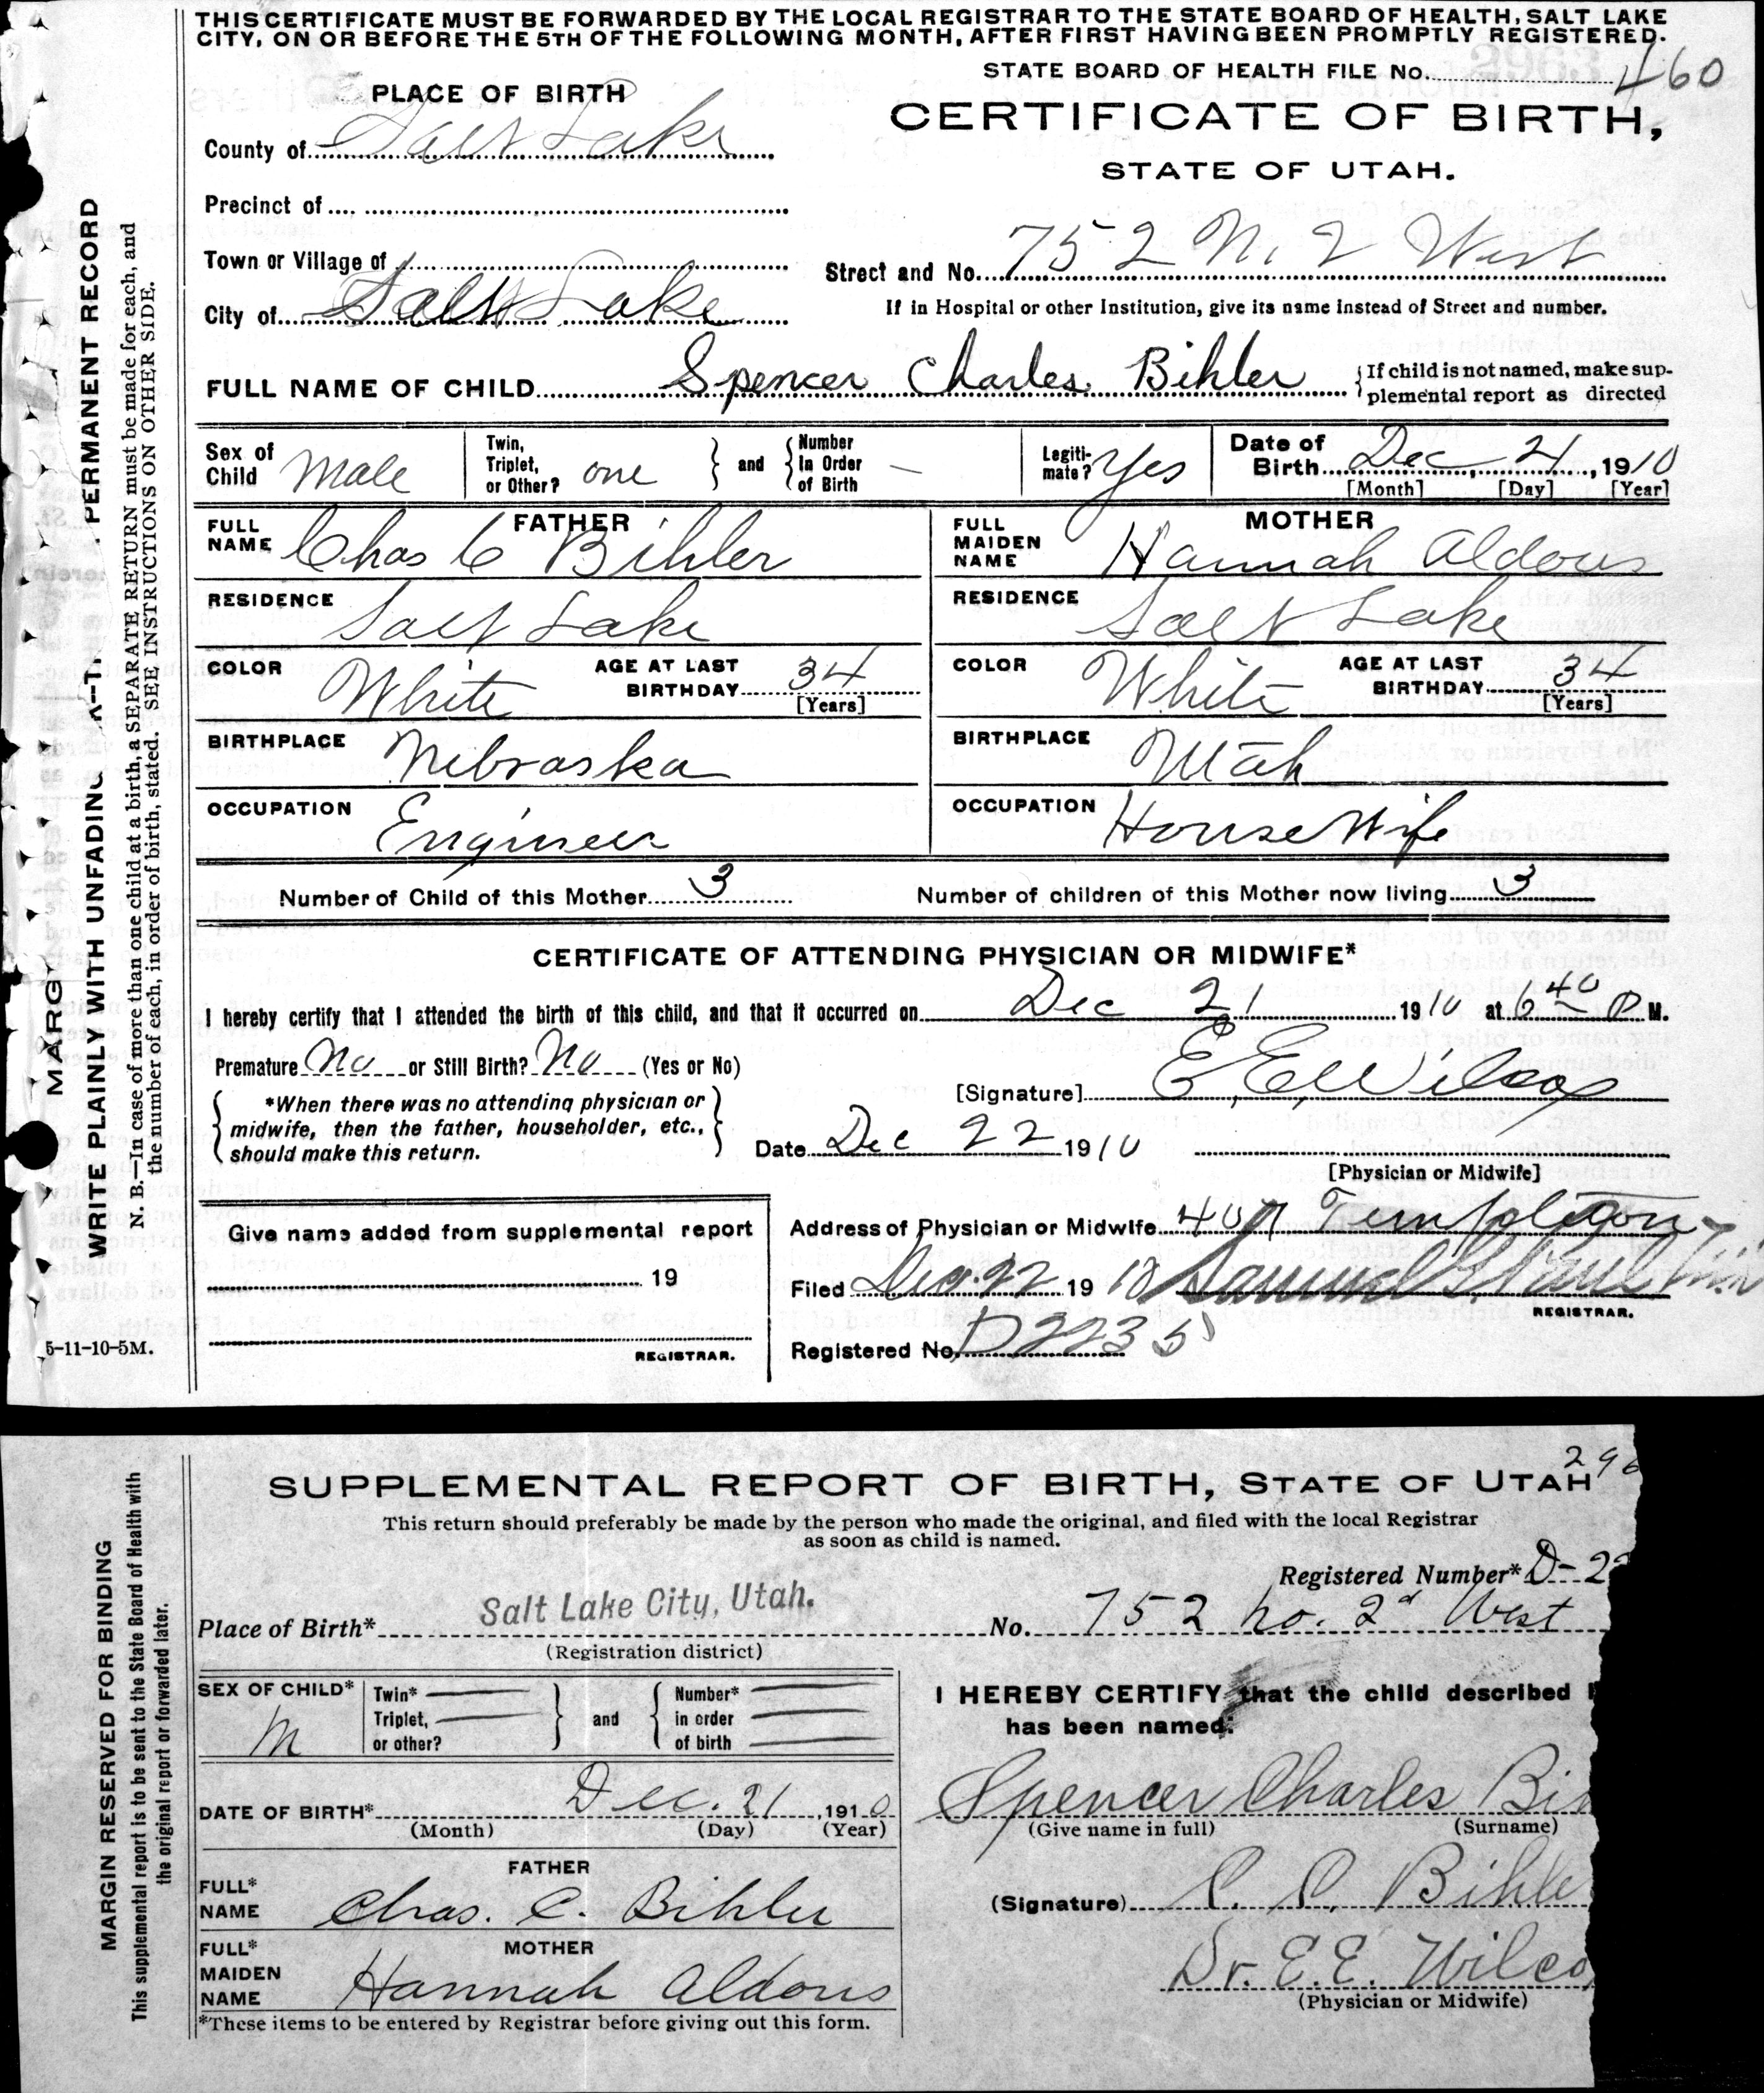 THIS CERTIFICATE MUST BE FORWARDED BY THE LOCAL REGISTRAR TO THE STATE BOARD OF HEALTH, SALT LAKE
CITY, ON OR BEFORE THE 5TH OF THE FOLLOWING MONTH, AFTER FIRST HAVING BEEN PROMPTLY REGISTERED.
STATE BOARD OF HEALTH FILE No. 460
PLACE OF BIRTH
CERTIFICATE OF BIRTH,
STATE OF UTAH.
County of Salt Lake
Precinct of
Town or Village of
Street and No. 752 N. 2 West
City of Salt Lake
If in Hospital or other Institution, give its name instead of Street and number.
FULL NAME OF CHILD Spencer Charles Bihler
If child is not named, make sup-
plemental report as directed
Sex of Child Male
Twin, Triplet, or Other? one and Number In Order of Birth —
Legiti-mate? Yes
Date of Birth Dec 21, 1910
[Month] [Day] [Year]
FATHER
FULL NAME Chas C Bihler
MOTHER
FULL MAIDEN NAME Hannah Aldous
RESIDENCE Salt Lake
RESIDENCE Salt Lake
COLOR White AGE AT LAST BIRTHDAY 34 [Years]
COLOR White AGE AT LAST BIRTHDAY 34 [Years]
BIRTHPLACE Nebraska
BIRTHPLACE Utah
OCCUPATION Engineer
OCCUPATION House Wife
Number of Child of this Mother 3
Number of children of this Mother now living 3
CERTIFICATE OF ATTENDING PHYSICIAN OR MIDWIFE*
I hereby certify that I attended the birth of this child, and that it occurred on Dec 21 1910 at 6 40 P M.
Premature No or Still Birth? No (Yes or No)
[Signature] E. E. Wilcox
*When there was no attending physician or
midwife, then the father, householder, etc.,
should make this return.
Date Dec 22 1910
[Physician or Midwife]
Give name added from supplemental report
19
REGISTRAR.
Address of Physician or Midwife 407 Templeton
Filed Dec. 22 1910 Samuel G. Paul
REGISTRAR.
Registered No. D2235
5-11-10-5M.
PERMANENT RECORD
WRITE PLAINLY WITH UNFADING
N. B.—In case of more than one child at a birth, a SEPARATE RETURN must be made for each, and
the number of each, in order of birth, stated. SEE INSTRUCTIONS ON OTHER SIDE.
296
SUPPLEMENTAL REPORT OF BIRTH, STATE OF UTAH
This return should preferably be made by the person who made the original, and filed with the local Registrar
as soon as child is named.
Registered Number* D-22
Place of Birth* Salt Lake City, Utah. No. 752 no. 2d West
(Registration district)
SEX OF CHILD* M
Twin* Triplet, or other? and Number* in order of birth
I HEREBY CERTIFY that the child described
has been named:
DATE OF BIRTH* Dec. 21, 1910
(Month) (Day) (Year)
Spencer Charles Bih
(Give name in full) (Surname)
FATHER
FULL* NAME Chas. C. Bihler
(Signature) C. C. Bihle
MOTHER
FULL* MAIDEN NAME Hannah Aldous
Dr. E.E. Wilco
(Physician or Midwife)
*These items to be entered by Registrar before giving out this form.
MARGIN RESERVED FOR BINDING
This supplemental report is to be sent to the State Board of Health with
the original report or forwarded later.